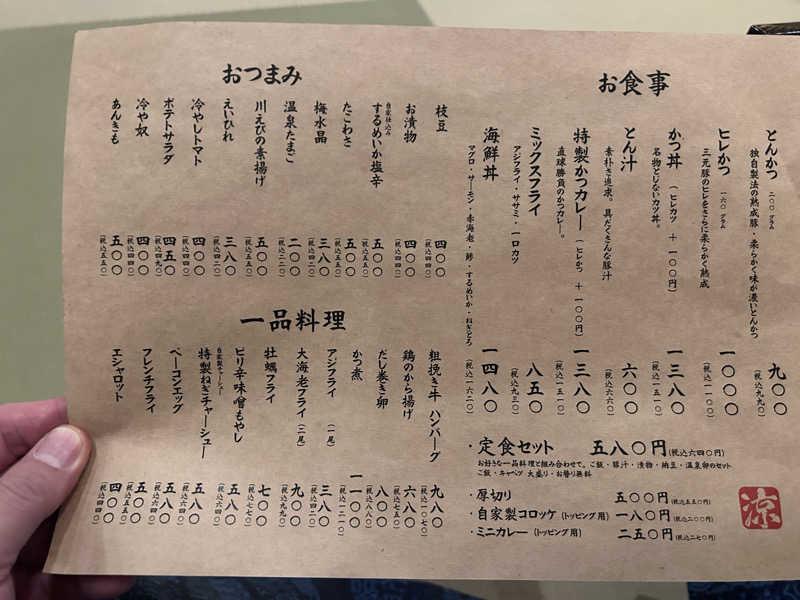 お食事
とんかつ 二〇〇グラム
独自製法の熟成豚・柔らかく味が濃いとんかつ
九〇〇
(税込九九〇)
ヒレかつ 一六〇グラム
三元豚のヒレをさらに柔らかく熟成
一〇〇〇
(税込一一〇〇)
かつ丼 (ヒレカツ + 一〇〇円)
名物とじないカツ丼。
一三八〇
(税込一五一〇)
とん汁
素朴さ追求。具だくさんな豚汁
六〇〇
(税込六六〇)
特製かつカレー (ヒレかつ + 一〇〇円)
直球勝負のかつカレー。
一三八〇
(税込一五一〇)
ミックスフライ
アジフライ・ササミ・一口カツ
八五〇
(税込九三〇)
海鮮丼
マグロ・サーモン・赤海老・鯵・するめいか・ねぎとろ
一四八〇
(税込一六二〇)
・定食セット 五八〇円(税込六四〇円)
お好きな一品料理と組み合わせて。ご飯・豚汁・漬物・納豆・温泉卵のセット
ご飯・キャベツ 大盛り・お替り無料
・厚切り 五〇〇円(税込五五〇円)
・自家製コロッケ(トッピング用) 一八〇円(税込二〇〇円)
・ミニカレー(トッピング用) 二五〇円(税込二七〇円)
涼
おつまみ
枝豆
四〇〇
(税込四四〇)
お漬物
四〇〇
(税込四四〇)
自家仕込み
するめいか塩辛
五〇〇
(税込五五〇)
たこわさ
五〇〇
(税込五五〇)
梅水晶
三八〇
(税込四二〇)
温泉たまご
二〇〇
(税込二二〇)
川えびの素揚げ
五〇〇
(税込五五〇)
えいひれ
三八〇
(税込四二〇)
冷やしトマト
四〇〇
(税込四四〇)
ポテトサラダ
四五〇
(税込四九〇)
冷や奴
四〇〇
(税込四四〇)
あんきも
五〇〇
(税込五五〇)
一品料理
粗挽き牛 ハンバーグ
九八〇
(税込一〇七〇)
鶏のから揚げ
六八〇
(税込七五〇)
だし巻き卵
八〇〇
(税込八八〇)
かつ煮
一一〇〇
(税込一二一〇)
アジフライ (一尾)
三八〇
(税込四二〇)
大海老フライ (二尾)
九〇〇
(税込九九〇)
牡蠣フライ
七〇〇
(税込七七〇)
ピリ辛味噌もやし
五八〇
(税込六四〇)
自家製チャーシュー
特製ねぎチャーシュー
五八〇
(税込六四〇)
ベーコンエッグ
五八〇
(税込六四〇)
フレンチフライ
五〇〇
(税込五五〇)
エシャロット
四〇〇
(税込四四〇)